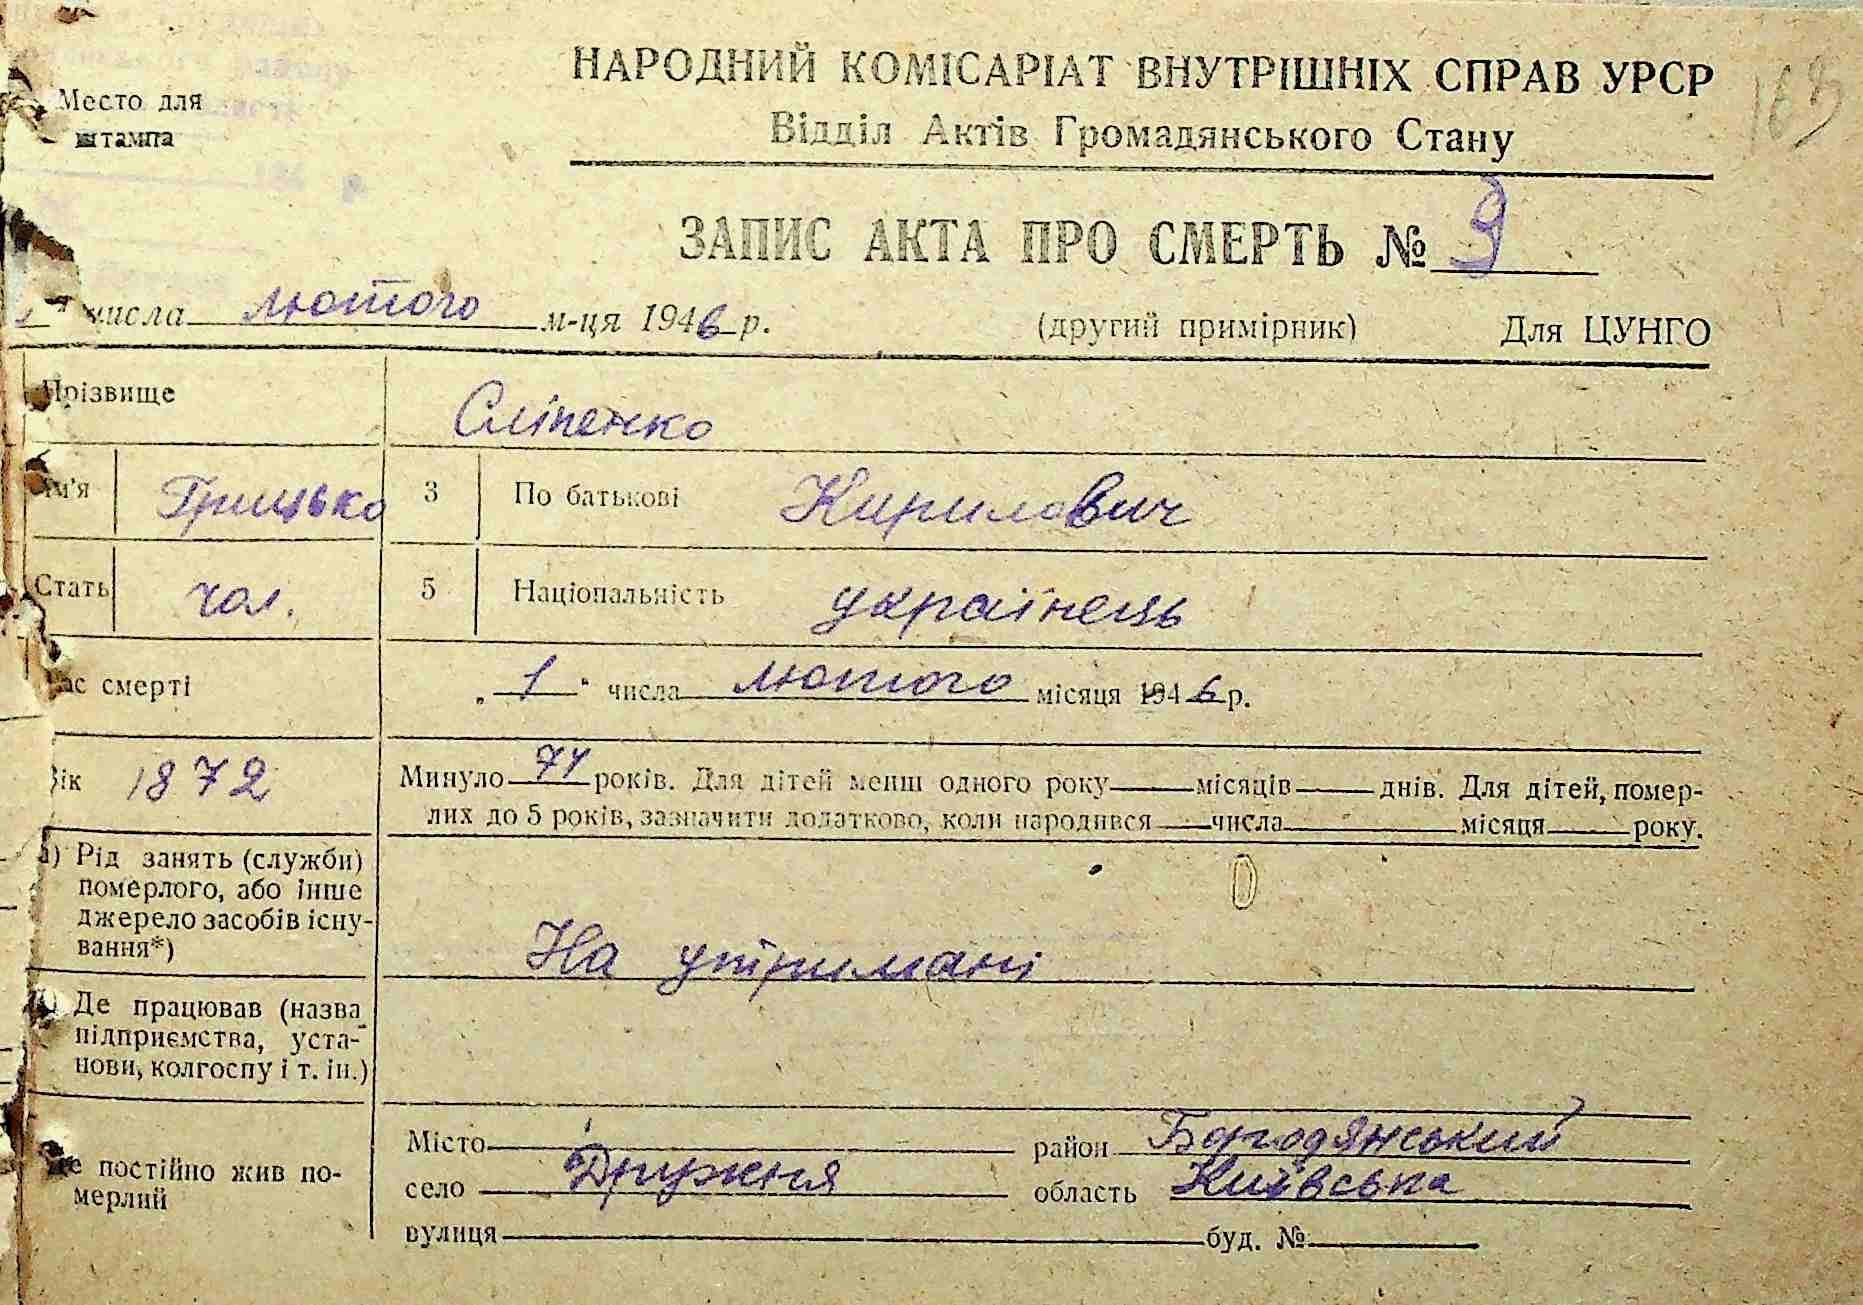 Место для
штампа
НАРОДНИЙ КОМІСАРІАТ ВНУТРІШНІХ СПРАВ УРСР
Відділ Актів Громадянського Стану
163
194 р.
ЗАПИС АКТА ПРО СМЕРТЬ № 9
числа лютого м-ця 1946 р. (другий примірник) Для ЦУНГО
Прізвище Сліпенко
Ім'я Грицько 3 По батькові Кирилович
Стать чол. 5 Національність українець
Час смерті „ 1 " числа лютого місяця 1946 р.
Вік 1872 Минуло 74 років. Для дітей менш одного року місяців днів. Для дітей, помер-
лих до 5 років, зазначити додатково, коли народився числа місяця року.
а) Рід занять (служби)
померлого, або інше
джерело засобів існу-
вання*)
На утримані
Де працював (назва
підприємства, уста-
нови, колгоспу і т. ін.)
Де постійно жив по-
мерлий
Місто район Бородянський
село Дружня область Київська
вулиця буд. №